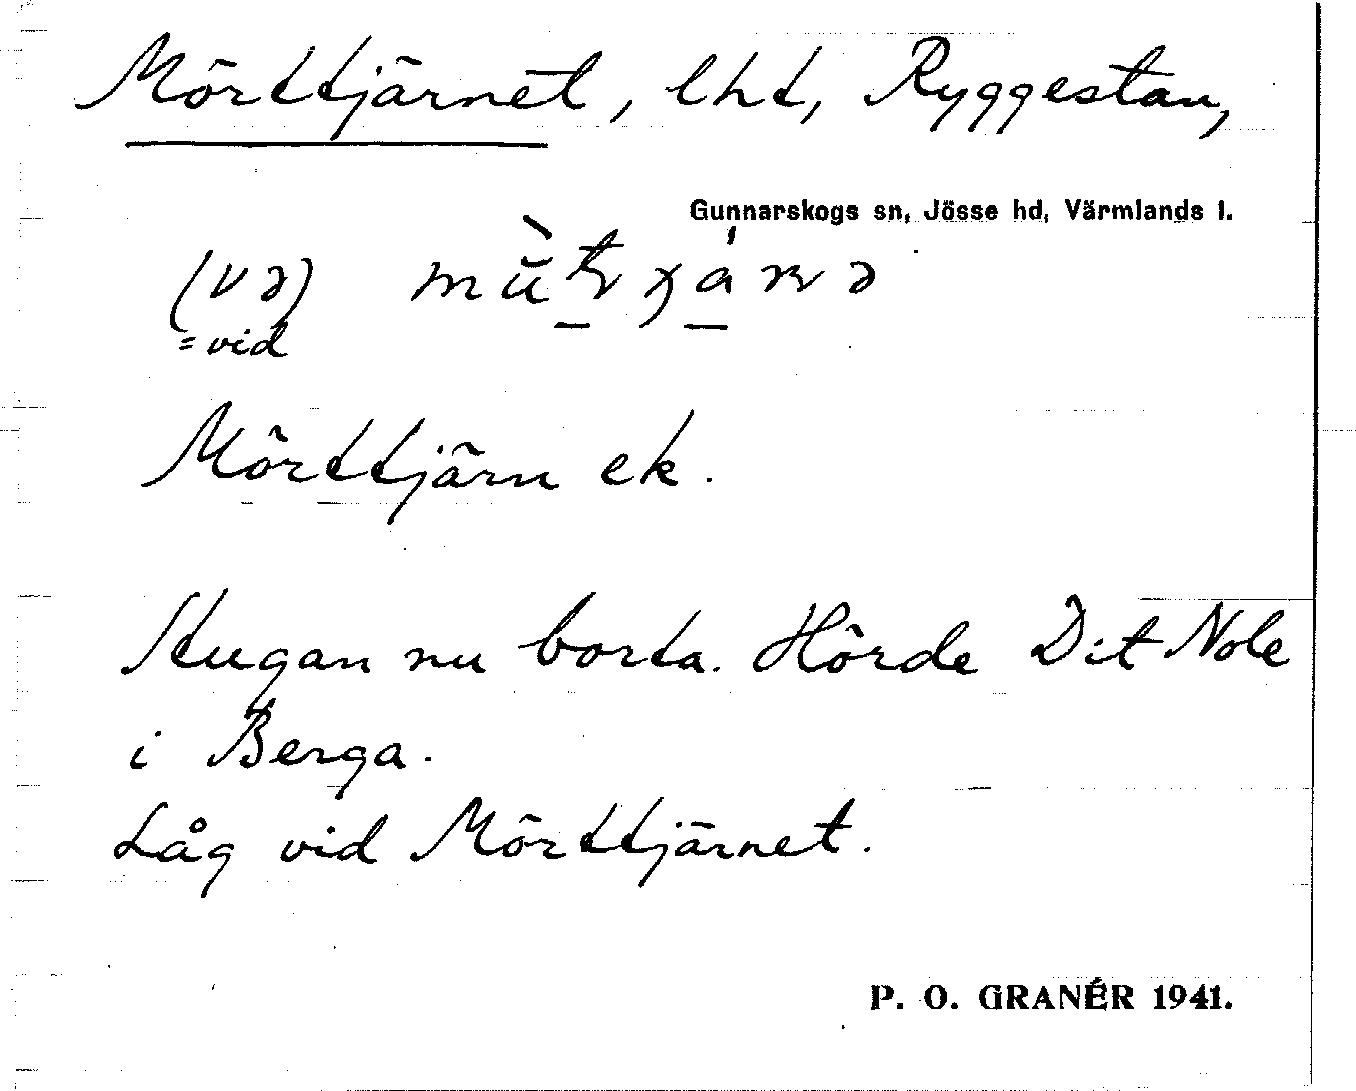 Mörttjärnet, lht, Ryggestan,
Gunnarskogs sn, Jösse hd, Värmlands l.
(və)
= vid
Mörttjärn ek.
Stugan nu borta. Hörde Dit Nole
i Berga.
Låg vid Mörttjärnet.
P. O. GRANÉR 1941.